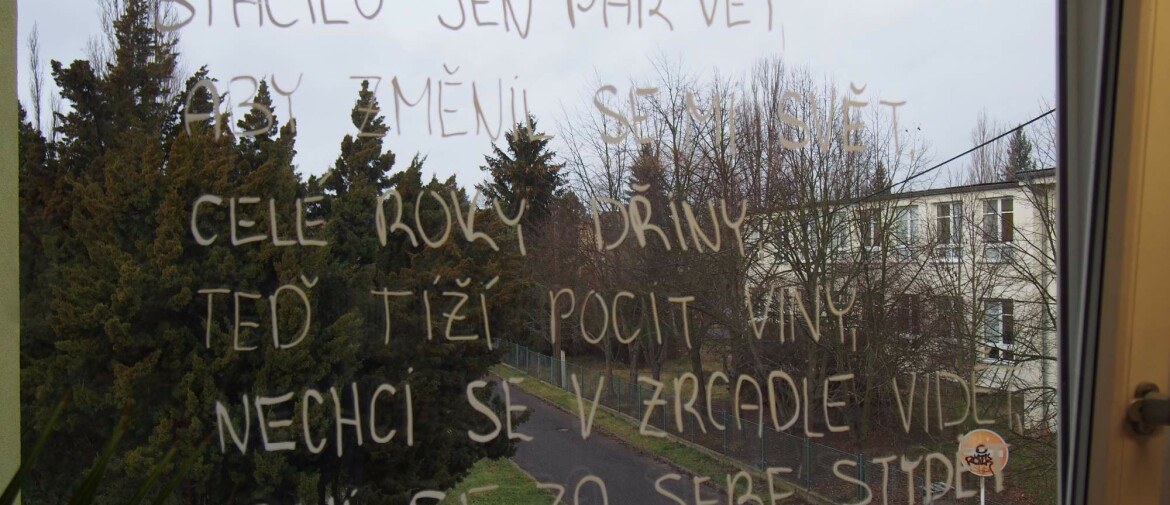 STAČILO JEN PÁR VĚT,
ABY ZMĚNIL SE MI SVĚT
CELÉ ROKY DŘINY
TEĎ TÍŽÍ POCIT VINY,
NECHCI SE V ZRCADLE VIDĚT,
SE ZA SEBE STYDĚT